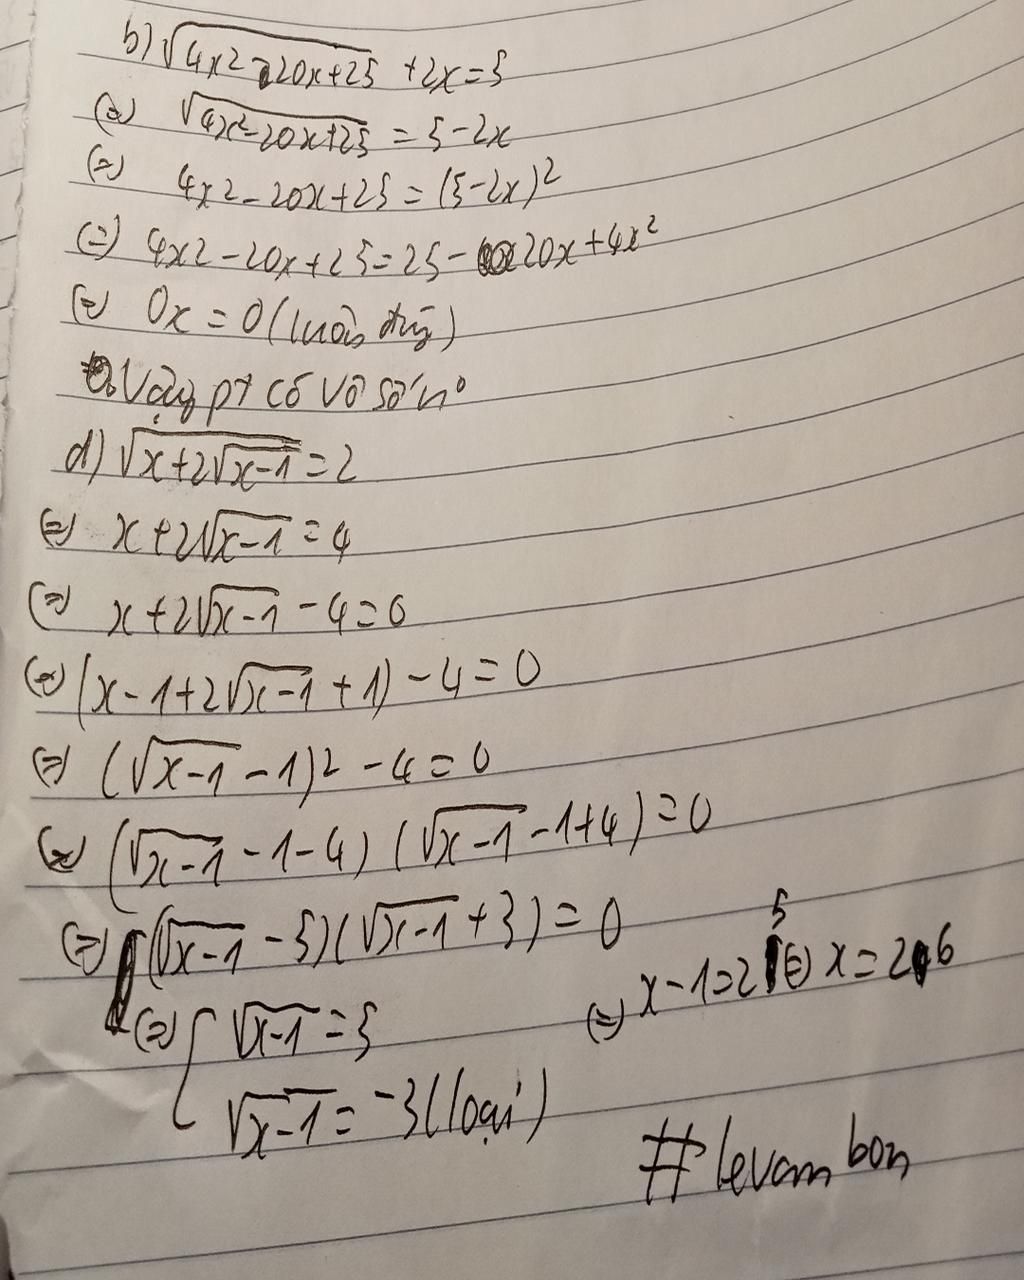 b) √(4x2 - 20x+25) +2x=5
(=) √(4x²-20x+25) = 5-2x
(=) 4x2-20x+25=(5-2x)²
(=) 4x2-20x+25=25-20x+4x²
(=) 0x=0 (luôn đúng)
Vậy pt có vô số n°
d) √(x+2√(x-1))=2
(=) x+2√(x-1)=4
(=) x+2√(x-1)-4=0
(=) (x-1+2√(x-1)+1)-4=0
(=) (√(x-1)-1)2-4=0
(=) (√(x-1)-1-4)(√(x-1)-1+4)=0
(=) (√(x-1)-5)(√(x-1)+3)=0
(=) [ √(x-1)=5 (=) x-1=25 (=) x=26
√(x-1)=-3 (loại)
#levambon